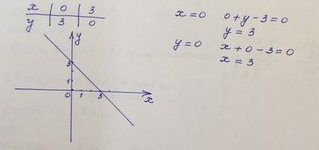 x | 0 | 3
y | 3 | 0
x=0 0+y-3=0
y=3
y=0 x+0-3=0
x=3
y
3
1
0 1 3
x